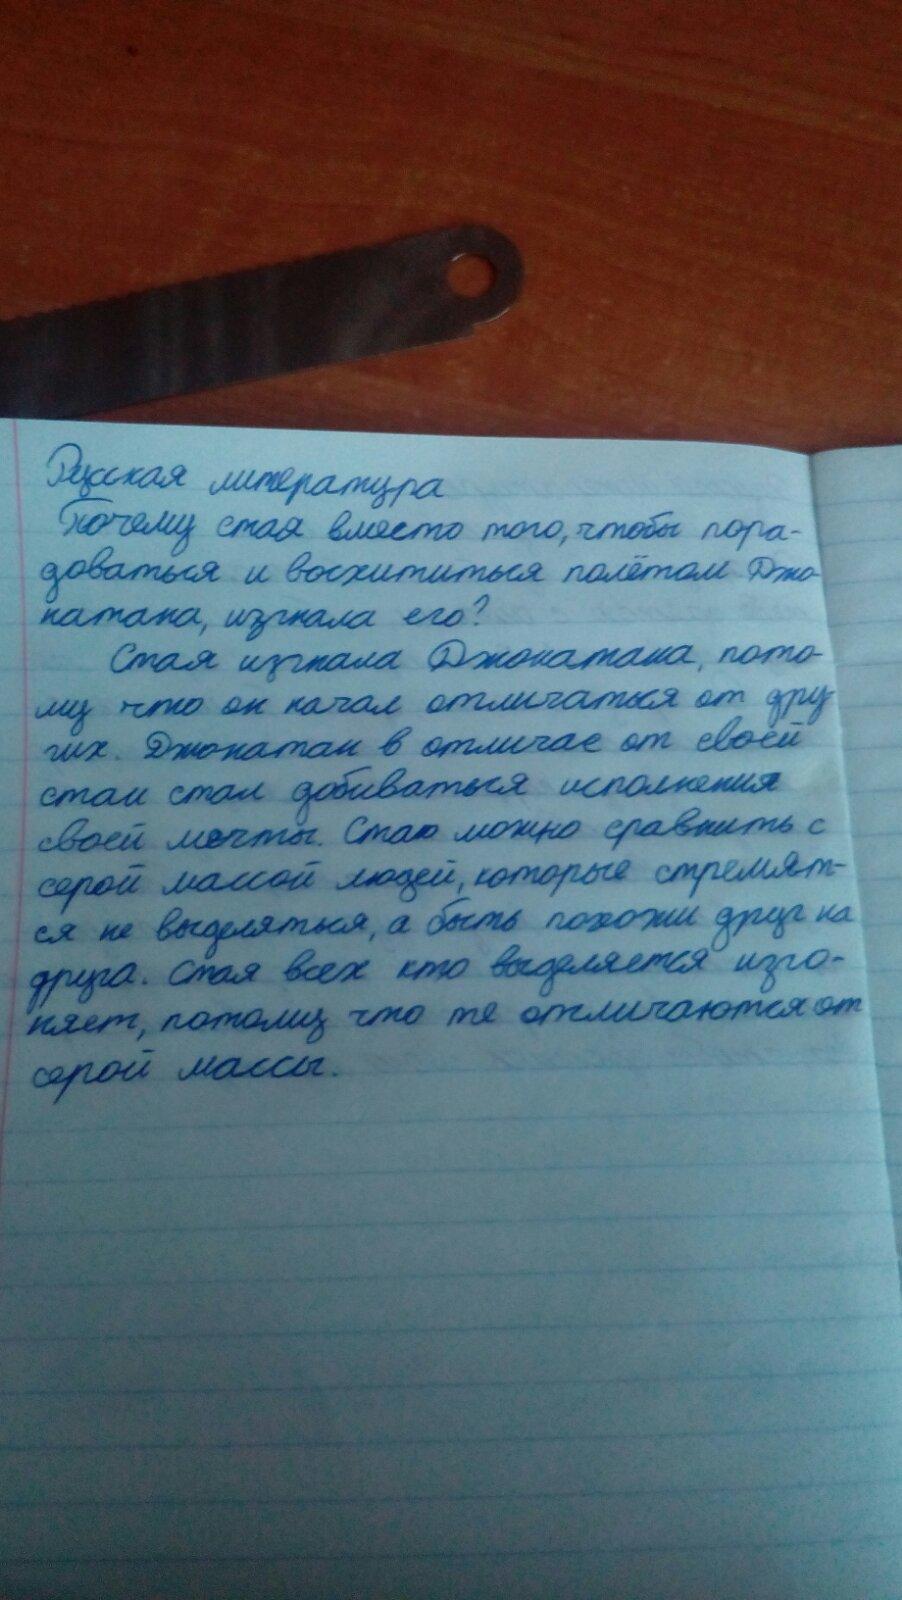 Русская литература
Почему стая вместо того, чтобы пора-
доваться и восхититься полётом Джо-
натана, изгнала его?
Стая изгнала Джонатана, пото-
му что он начал отличаться от дру
гих. Джонатан в отличае от своей
стаи стал добиваться исполнения
своей мечты. Стаю можно сравнить с
серой массой людей, которые стремят-
ся не выделяться, а быть похожи друг на
друга. Стая всех кто выделяется изго-
няет, потому что те отличаются от
серой массы.